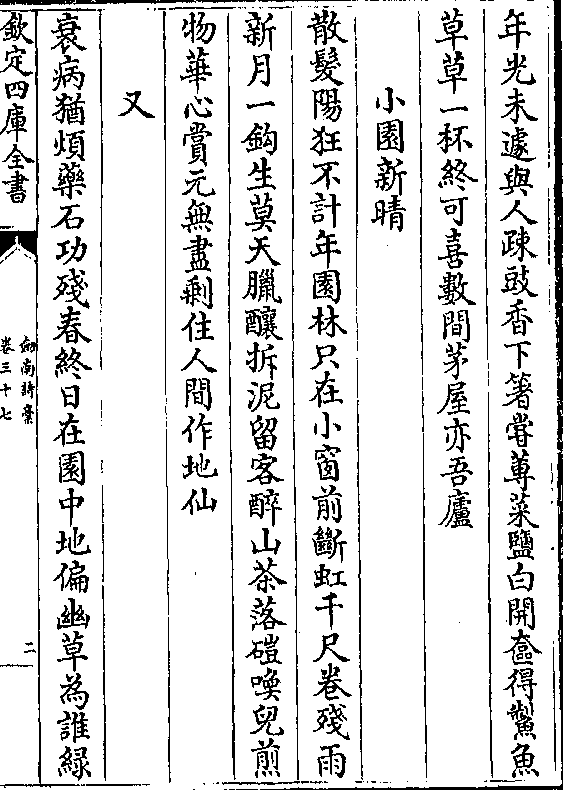 年光未遽與人疎豉香下箸嘗蓴菜鹽白開奩得鮺魚
草草一杯終可喜數間茅屋亦吾廬
小園新晴
散髮陽狂不計年園林只在小窗前斷虹千尺卷殘雨
新月一鈎生莫天臘釀拆泥留客醉山茶落磑喚兒煎
物華心賞元無盡剩住人間作地仙
又
衰病猶煩藥石功殘春終日在園中地偏幽草為誰緑
欽定四庫全書
劍南詩稾
卷三十七
二